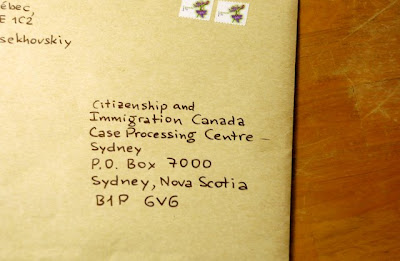 ébec,
E 1C2
sekhovskiy
Citizenship and
Immigration Canada
Case Processing Centre –
Sydney
P.O. Box 7000
Sydney, Nova Scotia
B1P 6V6